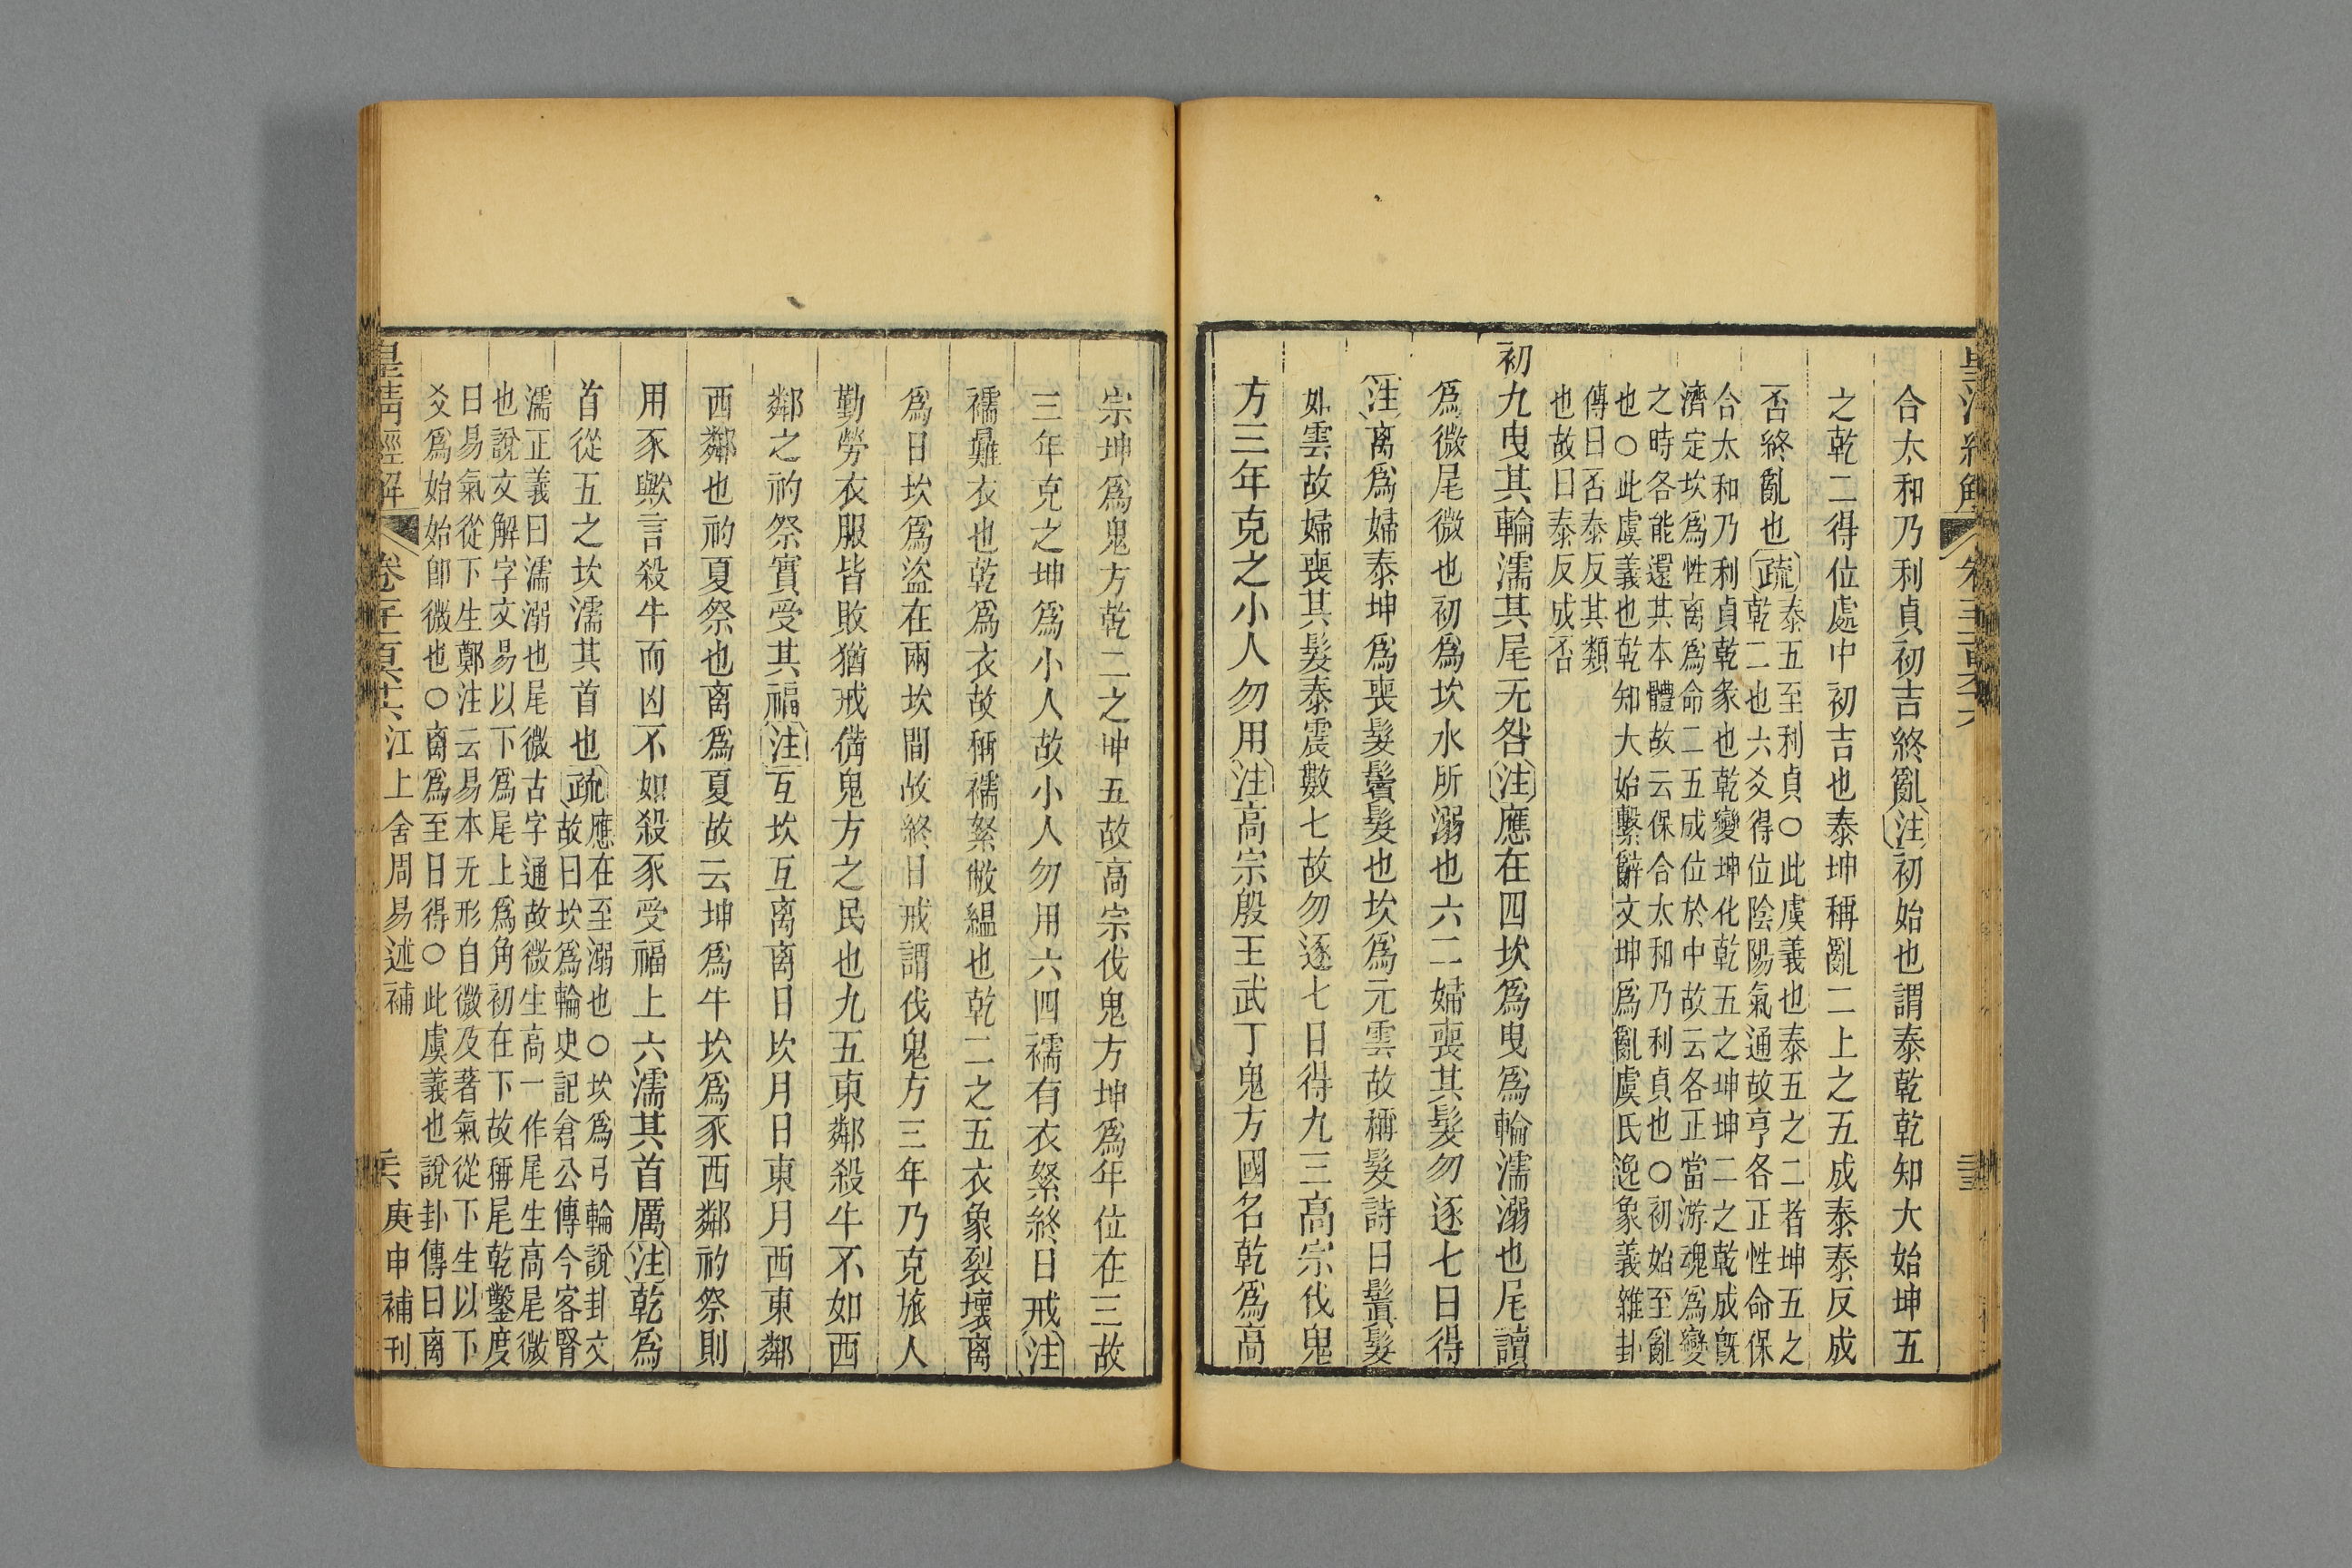 合太和乃利貞初吉終亂注初始也謂泰乾乾知大始坤五
之乾二得位處中初吉也泰坤稱亂二上之五成泰泰反成
否終亂也疏泰五至利貞○此虞義也泰五之二者坤五之
乾二也六爻得位陰陽氣通故亨各正性命保
合太和乃利貞乾彖也乾變坤化乾五之坤坤二之乾成旣
濟定坎爲性离爲命二五成位於中故云各正當游魂爲變
之時各能還其本體故云保合太和乃利貞也○初始至亂
也○此虞義也乾知大始繫辭文坤爲亂虞氏逸象義雜卦
傳曰否泰反其類
也故曰泰反成否
初九曳其輪濡其尾无咎注應在四坎爲曳爲輪濡溺也尾讀
爲微尾微也初爲坎水所溺也六二婦喪其髮勿逐七日得
注离爲婦泰坤爲喪髮鬒髮也坎爲元雲故稱髮詩曰鬒髮
如雲故婦喪其髮泰震數七故勿逐七日得九三高宗伐鬼
方三年克之小人勿用注高宗殷王武丁鬼方國名乾爲高
宗坤爲鬼方乾二之坤五故高宗伐鬼方坤爲年位在三故
三年克之坤爲小人故小人勿用六四襦有衣袽終日戒注
襦㡓衣也乾爲衣故稱襦袽敝緼也乾二之五衣象裂壞离
爲日坎爲盜在兩坎間故終日戒謂伐鬼方三年乃克旅人
勤勞衣服皆敗猶戒備鬼方之民也九五東鄰殺牛不如西
鄰之礿祭實受其福注互坎互离离日坎月日東月西東鄰
西鄰也礿夏祭也离爲夏故云坤爲牛坎爲豕西鄰礿祭則
用豕與言殺牛而凶不如殺豕受福上六濡其首厲注乾爲
首從五之坎濡其首也疏應在至溺也○坎爲弓輪說卦文
故曰坎爲輪史記倉公傳今客腎
濡正義曰濡溺也尾微古字通故微生高一作尾生高尾微
也說文解字文易以下爲尾上爲角初在下故稱尾乾鑿度
曰易氣從下生鄭注云易本无形自微及著氣從下生以下
爻爲始始卽微也○离爲至日得○此虞義也說卦傳曰离
皇清經解
江上舍周易述補
庚申補刊